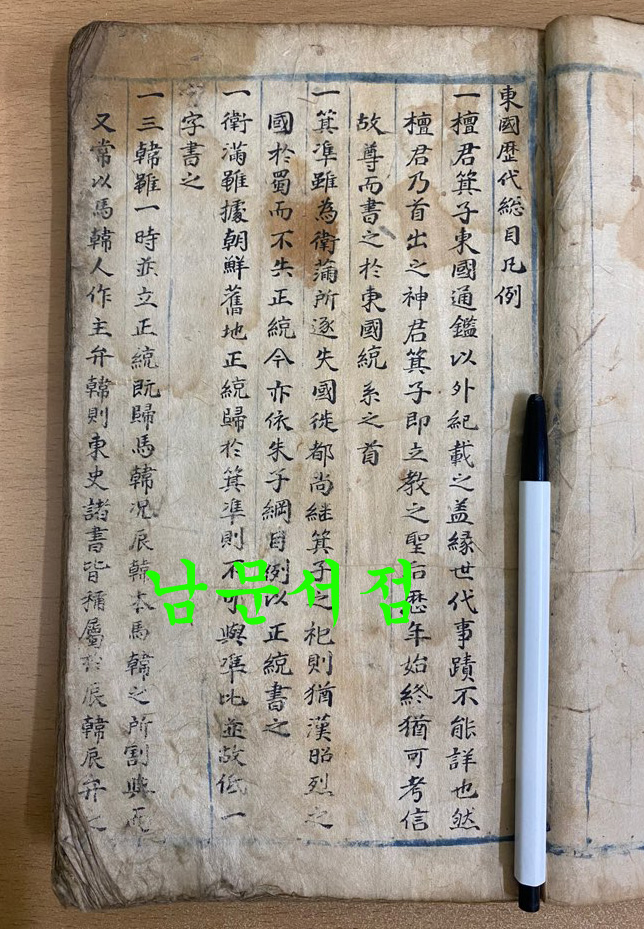 東國歷代総目凡例
一檀君箕子東國通鑑以外紀載之盖緣世代事蹟不能詳也然
檀君乃首出之神君箕子即立教之聖后歷年始終猶可考信
故尊而書之於東國統系之首
一箕準雖為衛蒲所逐失國徙都尚継箕子之祀則猶漢昭烈之
國於蜀而不失正統今亦依朱子綱目例以正統書之
一衛滿雖據朝鮮舊地正統歸於箕準則不可與準比並故低一
字書之
一三韓雖一時並立正統既歸馬韓况辰韓本馬韓之所割與而
又常以馬韓人作主弁韓則東史諸書皆稱屬於辰韓辰弁之
남문서점